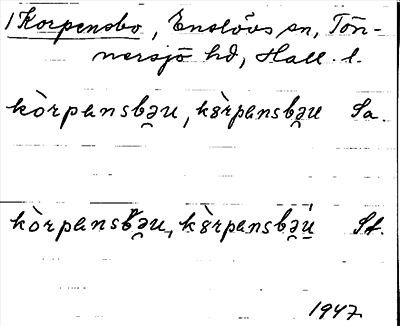 1 Korpensbo, Enslövs sn, Tön-
nersjö hd, Hall. l.
kòrpansbə̯u, kȣ̀rpansbə̯u Sa.
kòrpansbə̯u, kȣ̀rpansbə̯ú St.
1947